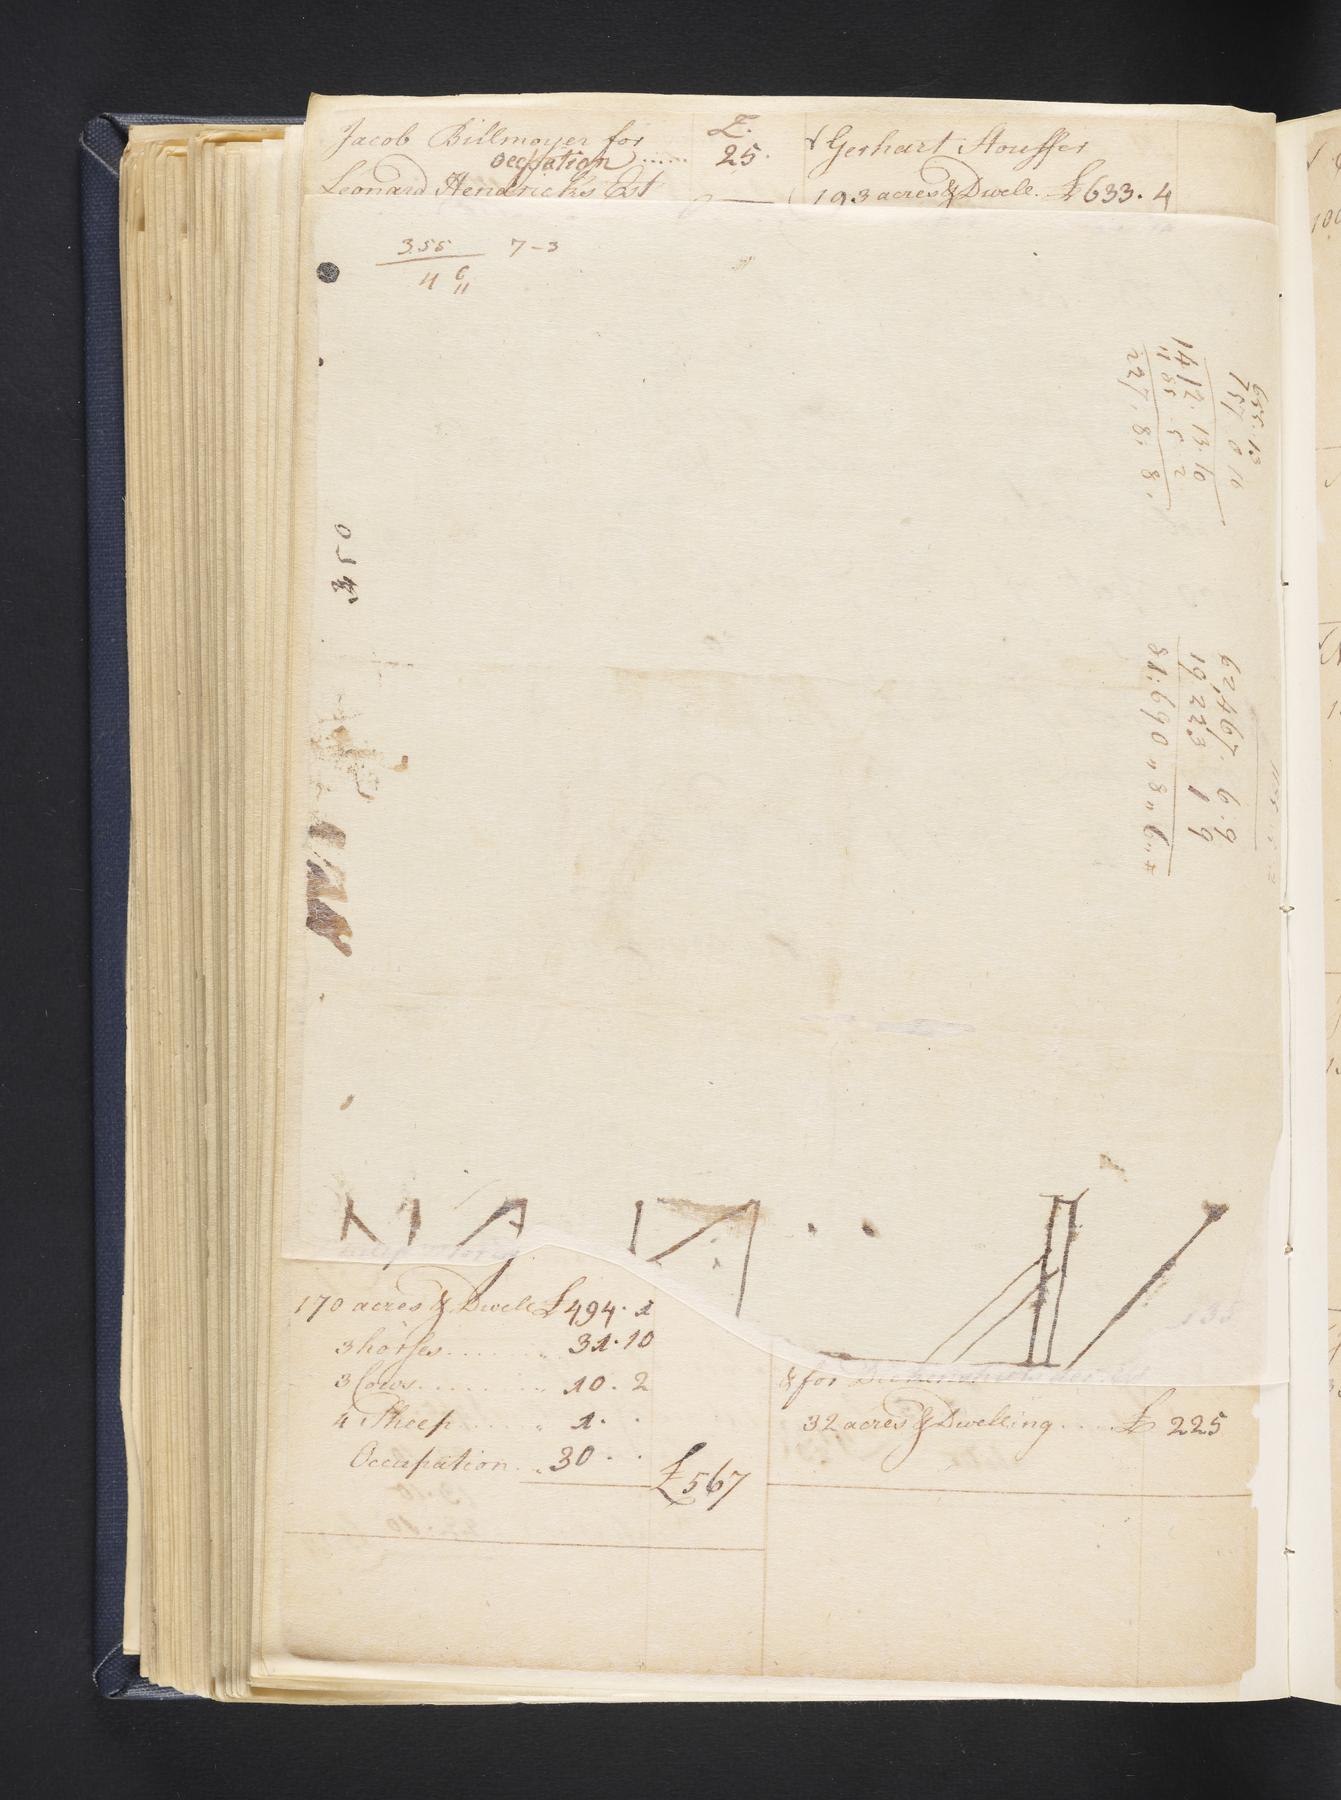 Jacob Billmoyer for
Occupation ...... £. 25.
Leonard Hendricks Est
Gerhart Stouffer
193 acres & Dwell. £633.4
355 7-3
4 6
11
350
655.13
757. 8 10
1412.13.10
1185.5 2
227.8:8.
62,467. 6:9
19 223 1 9
81:690 " 8 " 6 "
170 acres & Dwell £494.1
3 horses ........ 31.10
3 Cows .......... 10.2
4 Sheep ..... 1. .
Occupation .. 30 . .
£567
135
& for
32 acres & Dwelling .... £ 225